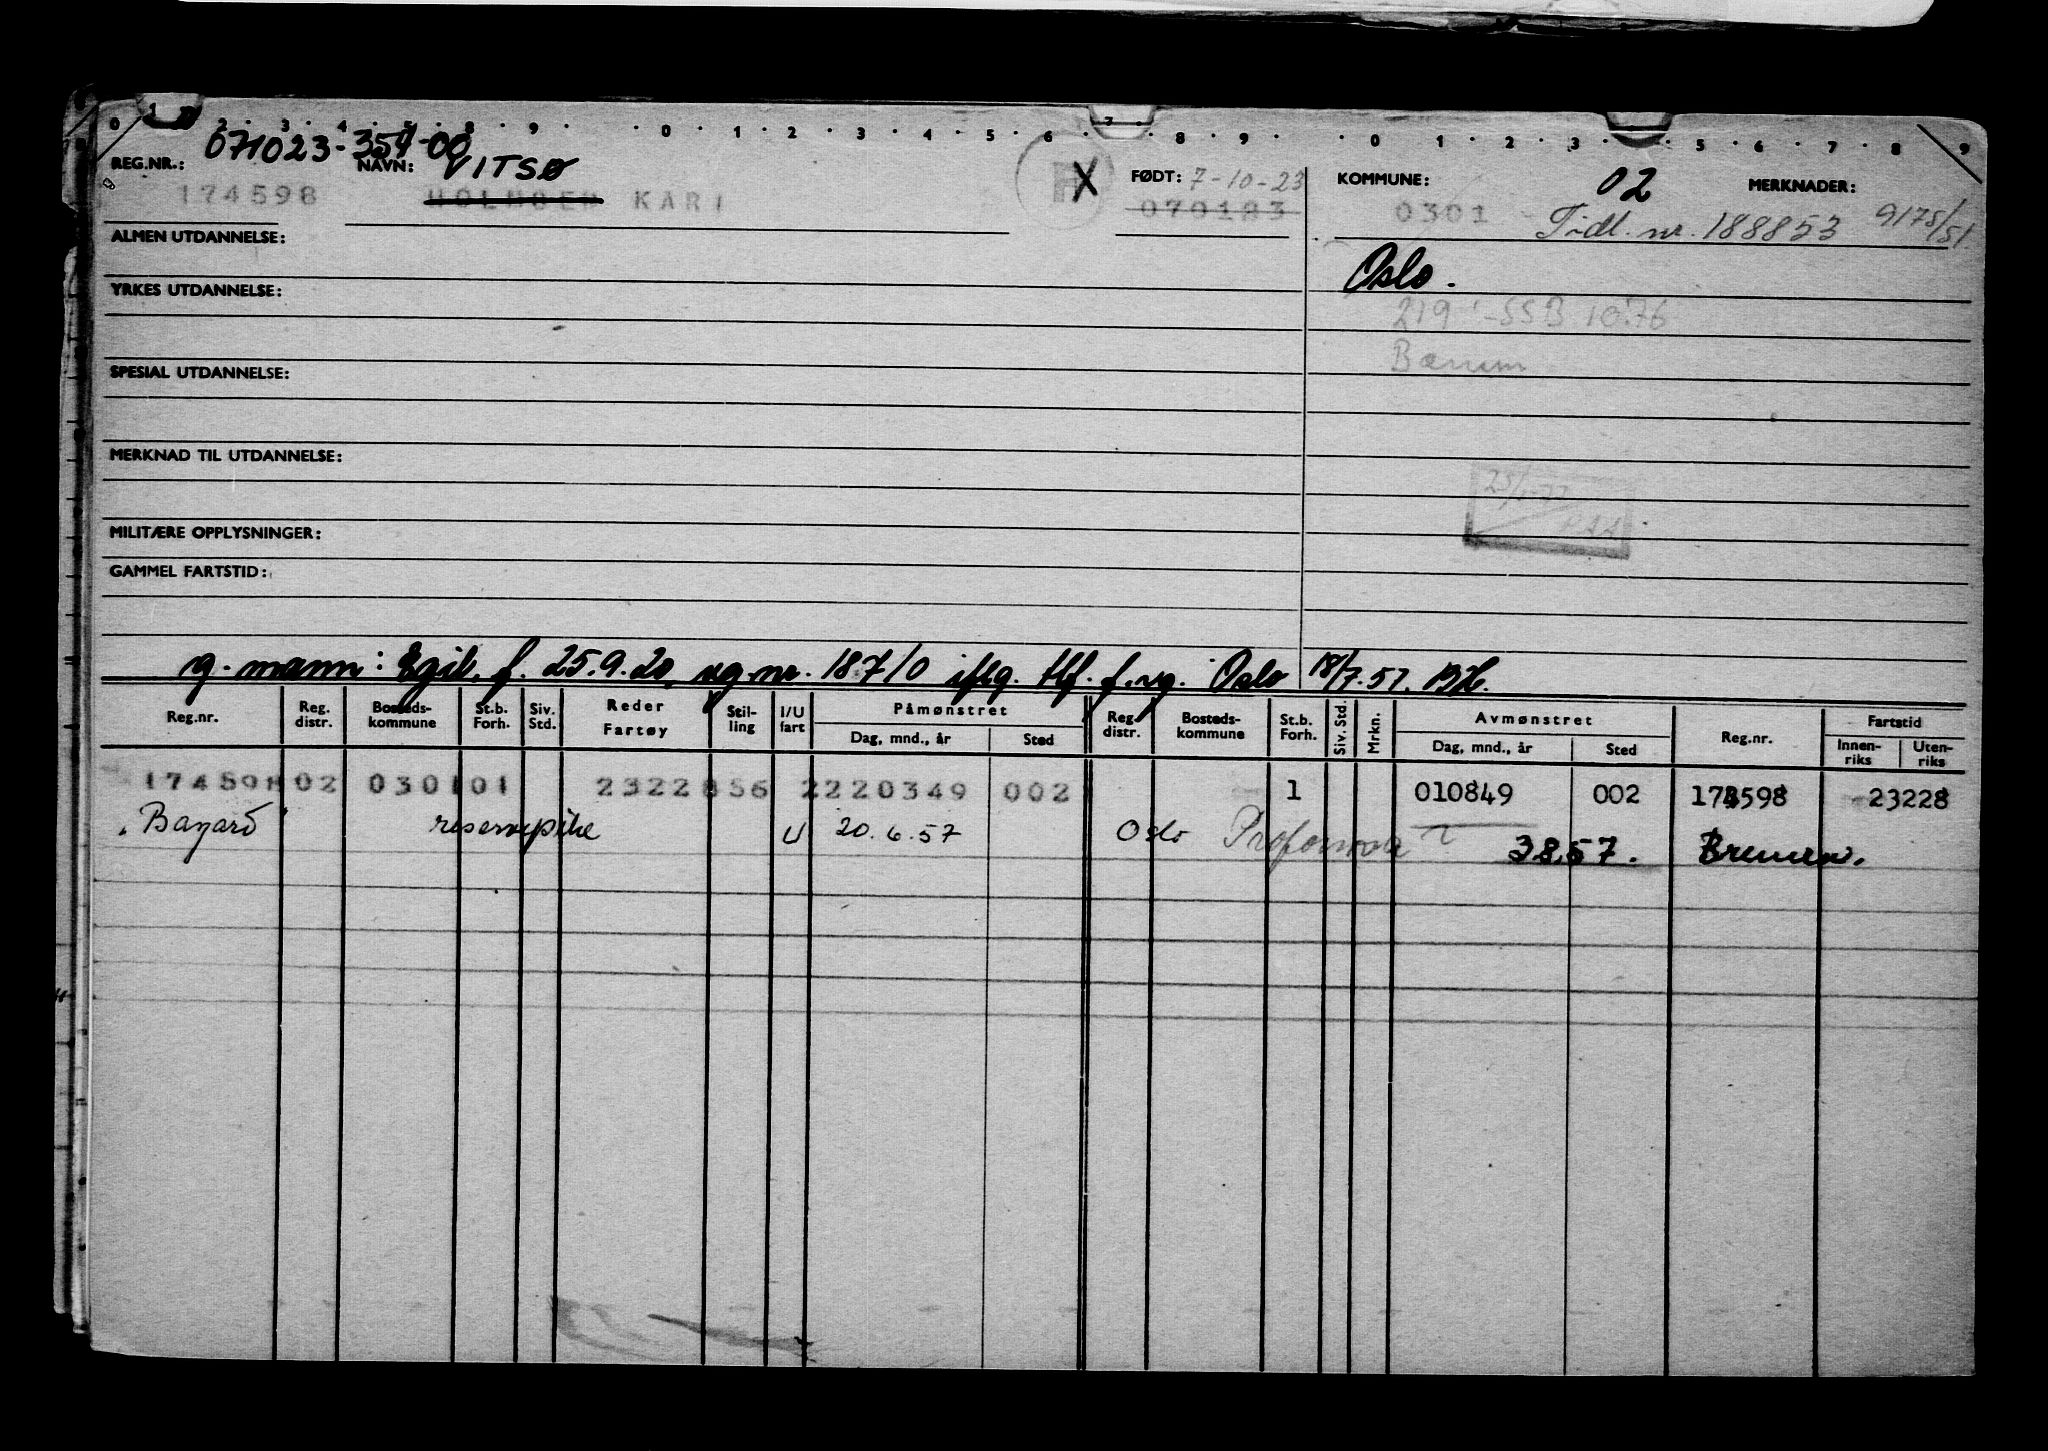 0 1 2 3 4 5 8 9 0 1 2 3 4 5 6 7 8 9 0 1 2 3 5 6 7 8 9
071023-354-00
REG.NR.: NAVN: VITSØ X FØDT: 7-10-23 KOMMUNE: 02 MERKNADER:
174598 KARI 070183 0301 Tidl. nr. 188853 9175/51
ALMEN UTDANNELSE:
Oslo.
YRKES UTDANNELSE:
219 -SSB 10.76
Bærum
SPESIAL UTDANNELSE:
MERKNAD TIL UTDANNELSE:
MILITÆRE OPPLYSNINGER:
GAMMEL FARTSTID:
g. mann: Egil. f. 25.9.20, rg.nr. 18710 iflg. tlf. f. rg. Oslo 18/7.57.
Reg.nr. Reg. distr. Bosteds-kommune St.b. Forh. Siv. Std. Reder Fartøy Stil-ling I/U fart Påmønstret Dag, mnd., år Sted Reg. distr. Bosteds-kommune St.b. Forh. Siv. Std. Mrkn. Avmønstret Dag, mnd., år Sted Reg.nr. Fartstid Innen-riks Uten-riks
174598 02 0301 01 2322 856 2 220349 002 1 010849 002 174598 23228
"Bayard" reservepike U 20.6.57 Oslo Proforma 3857. Bremen.